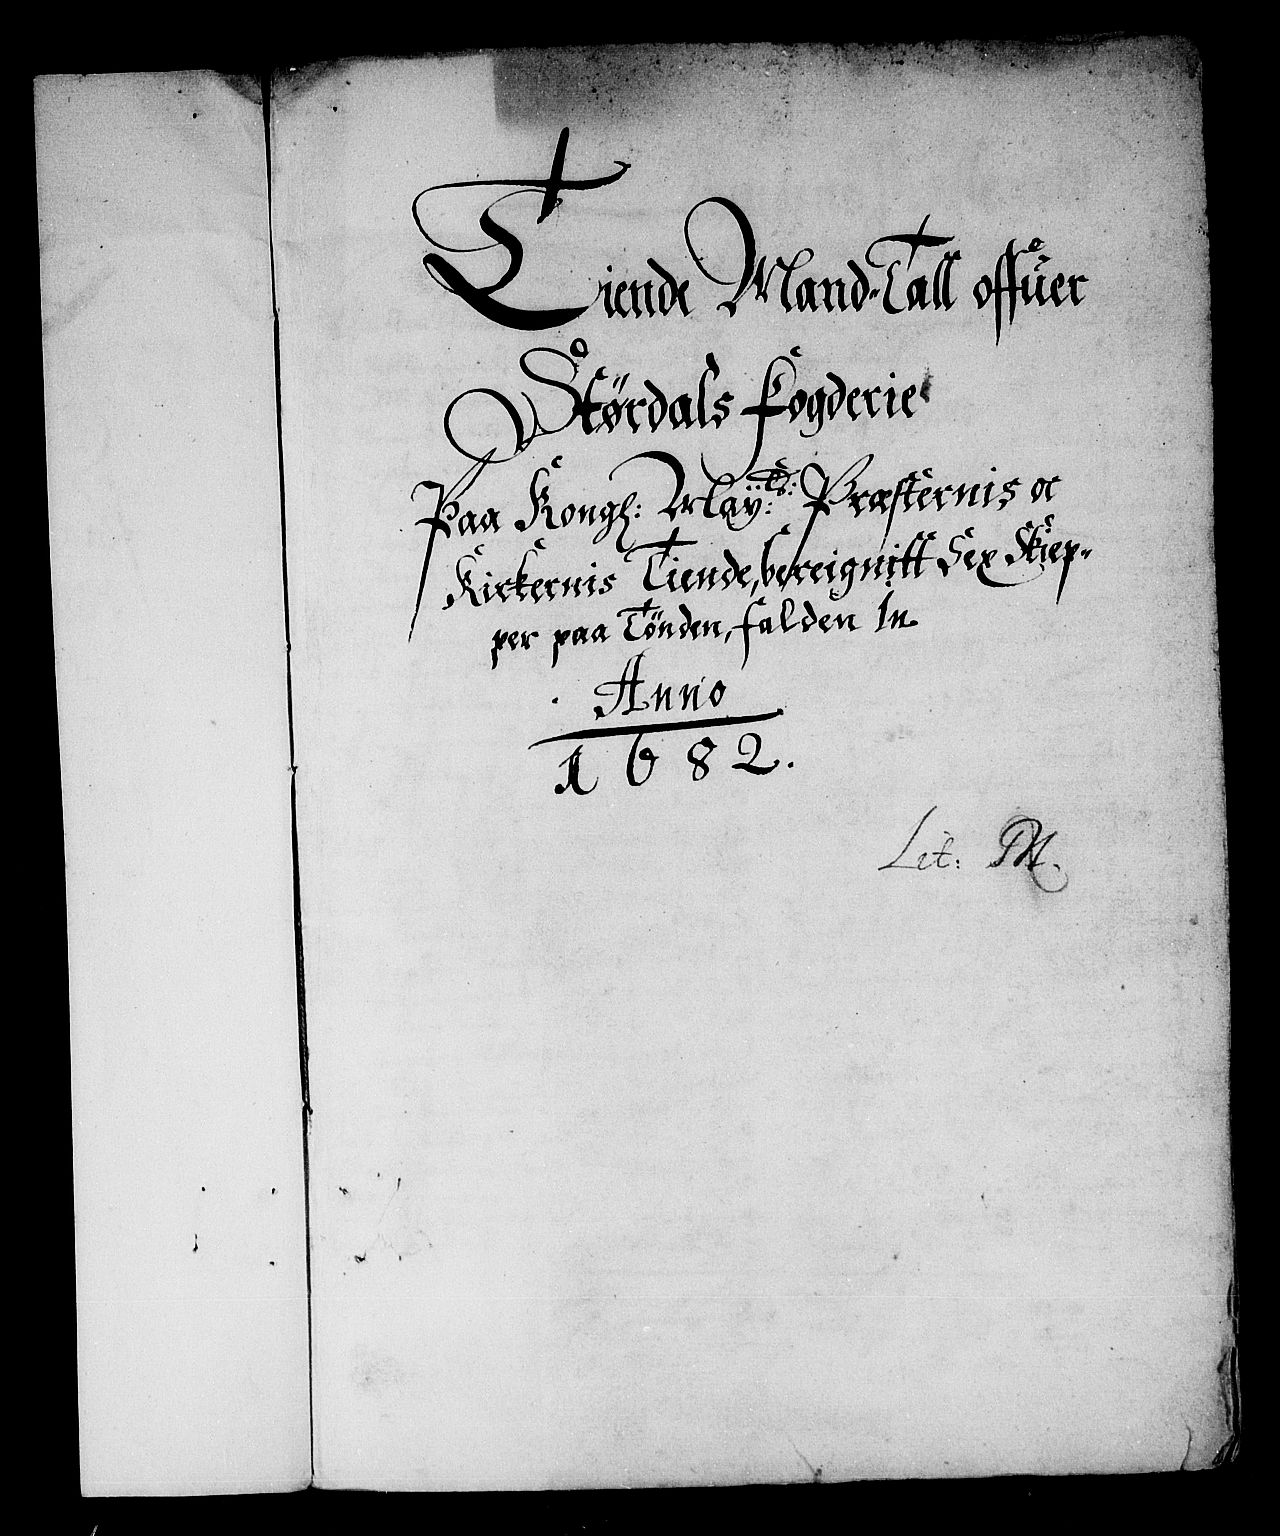 Tiende Mand-Tall offuer
Størdals Fogderie
Paa Kongl: May:ts: Præsternis oc
Kirkernis Tiende, bereignitt Sex Skiep-
per paa Tønden, falden In
Anno
1682.
Lit: M.